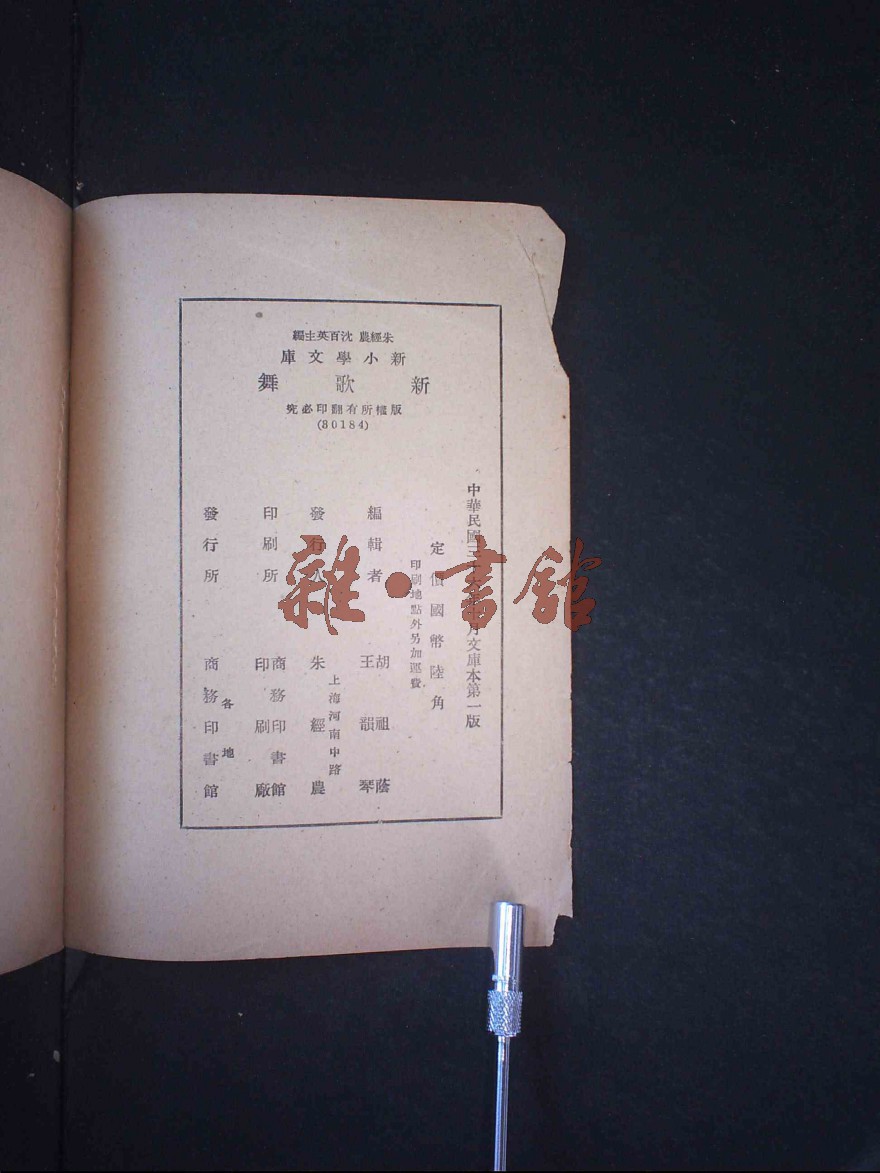 朱經農 沈百英主編
新小學文庫
新歌舞
版權所有翻印必究
(80184)
中華民國三月文庫本第一版
定價國幣陸角
印刷地點外另加運費
編輯者 胡祖蔭
王韻琴
發行人 上海河南中路
朱經農
印刷所 商務印書館
印刷廠
發行所 各地
商務印書館
雜·書館